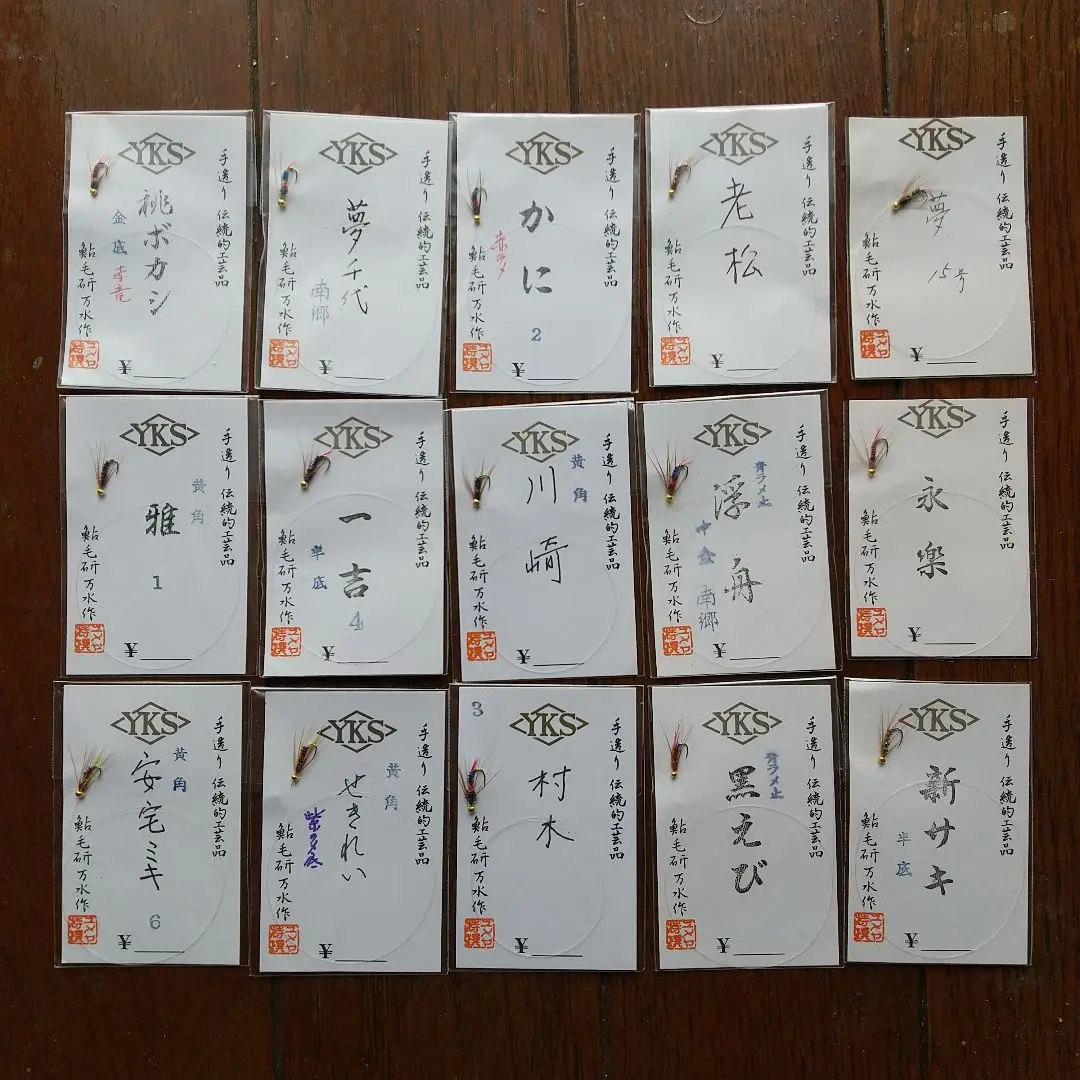 YKS
手造り 伝統的工芸品
桃ボカシ
金底
赤竜
鮎毛研 万水作
¥
YKS
手造り 伝統的工芸品
夢千代
南郷
鮎毛研 万水作
¥
YKS
手造り 伝統的工芸品
かに
赤ラメ
2
鮎毛研 万水作
¥
YKS
手造り 伝統的工芸品
老松
鮎毛研 万水作
¥
YKS
手造り 伝統的工芸品
夢
15号
鮎毛研 万水作
¥
YKS
手造り 伝統的工芸品
黄角
雅
1
鮎毛研 万水作
¥
YKS
手造り 伝統的工芸品
一吉
半底
4
鮎毛研 万水作
¥
YKS
手造り 伝統的工芸品
黄角
川崎
鮎毛研 万水作
¥
YKS
手造り 伝統的工芸品
青ラメ止
浮舟
中金 南郷
鮎毛研 万水作
¥
YKS
手造り 伝統的工芸品
永楽
鮎毛研 万水作
¥
YKS
手造り 伝統的工芸品
黄角
安宅ミキ
6
鮎毛研 万水作
¥
YKS
手造り 伝統的工芸品
黄角
せきれい
鮎毛研 万水作
¥
3
YKS
手造り 伝統的工芸品
村木
鮎毛研 万水作
¥
YKS
手造り 伝統的工芸品
青ラメ止
黒えび
鮎毛研 万水作
¥
YKS
手造り 伝統的工芸品
新サキ
半底
鮎毛研 万水作
¥